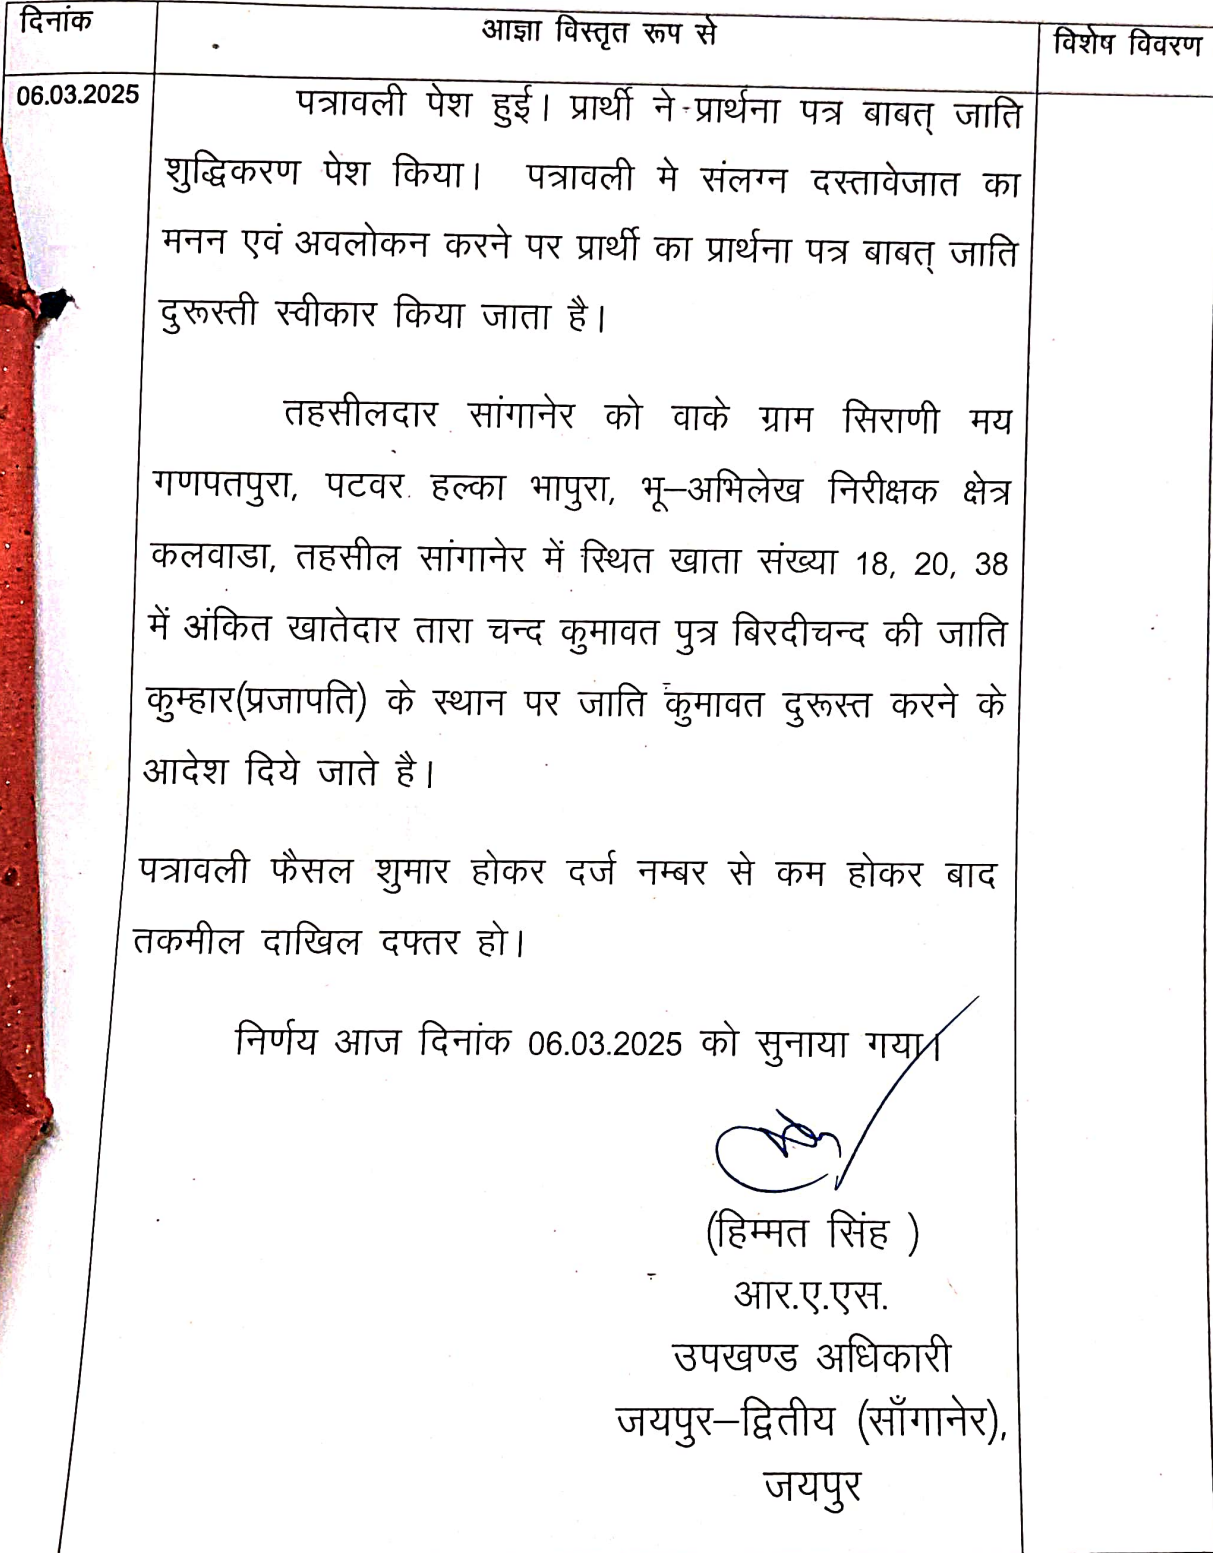 दिनांक
आज्ञा विस्तृत रूप से
विशेष विवरण
06.03.2025
पत्रावली पेश हुई। प्रार्थी ने प्रार्थना पत्र बाबत् जाति
शुद्धिकरण पेश किया। पत्रावली मे संलग्न दस्तावेजात का
मनन एवं अवलोकन करने पर प्रार्थी का प्रार्थना पत्र बाबत् जाति
दुरूस्ती स्वीकार किया जाता है।
तहसीलदार सांगानेर को वाके ग्राम सिराणी मय
गणपतपुरा, पटवर हल्का भापुरा, भू–अभिलेख निरीक्षक क्षेत्र
कलवाडा, तहसील सांगानेर में स्थित खाता संख्या 18, 20, 38
में अंकित खातेदार तारा चन्द कुमावत पुत्र बिरदीचन्द की जाति
कुम्हार(प्रजापति) के स्थान पर जाति कुमावत दुरूस्त करने के
आदेश दिये जाते है।
पत्रावली फैसल शुमार होकर दर्ज नम्बर से कम होकर बाद
तकमील दाखिल दफ्तर हो।
निर्णय आज दिनांक 06.03.2025 को सुनाया गया।
(हिम्मत सिंह )
आर.ए.एस.
उपखण्ड अधिकारी
जयपुर–द्वितीय (साँगानेर),
जयपुर